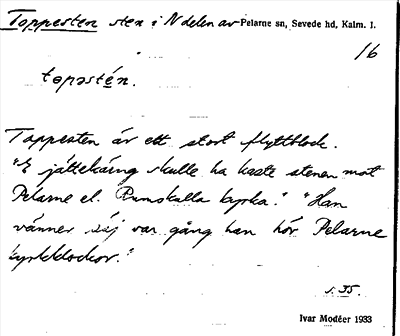 Toppesten sten i N delen av Pelarne sn, Sevede hd, Kalm. l.
16
tòpəstén.
Toppesten är ett stort flyttblock.
"E jättekäring skulle ha kaste stenen mot
Pelarne el. Rumskulla kyrka." "Han
vänner säj var gång han hör Pelarne
kyrkklockor."
s. 35.
Ivar Modéer 1933